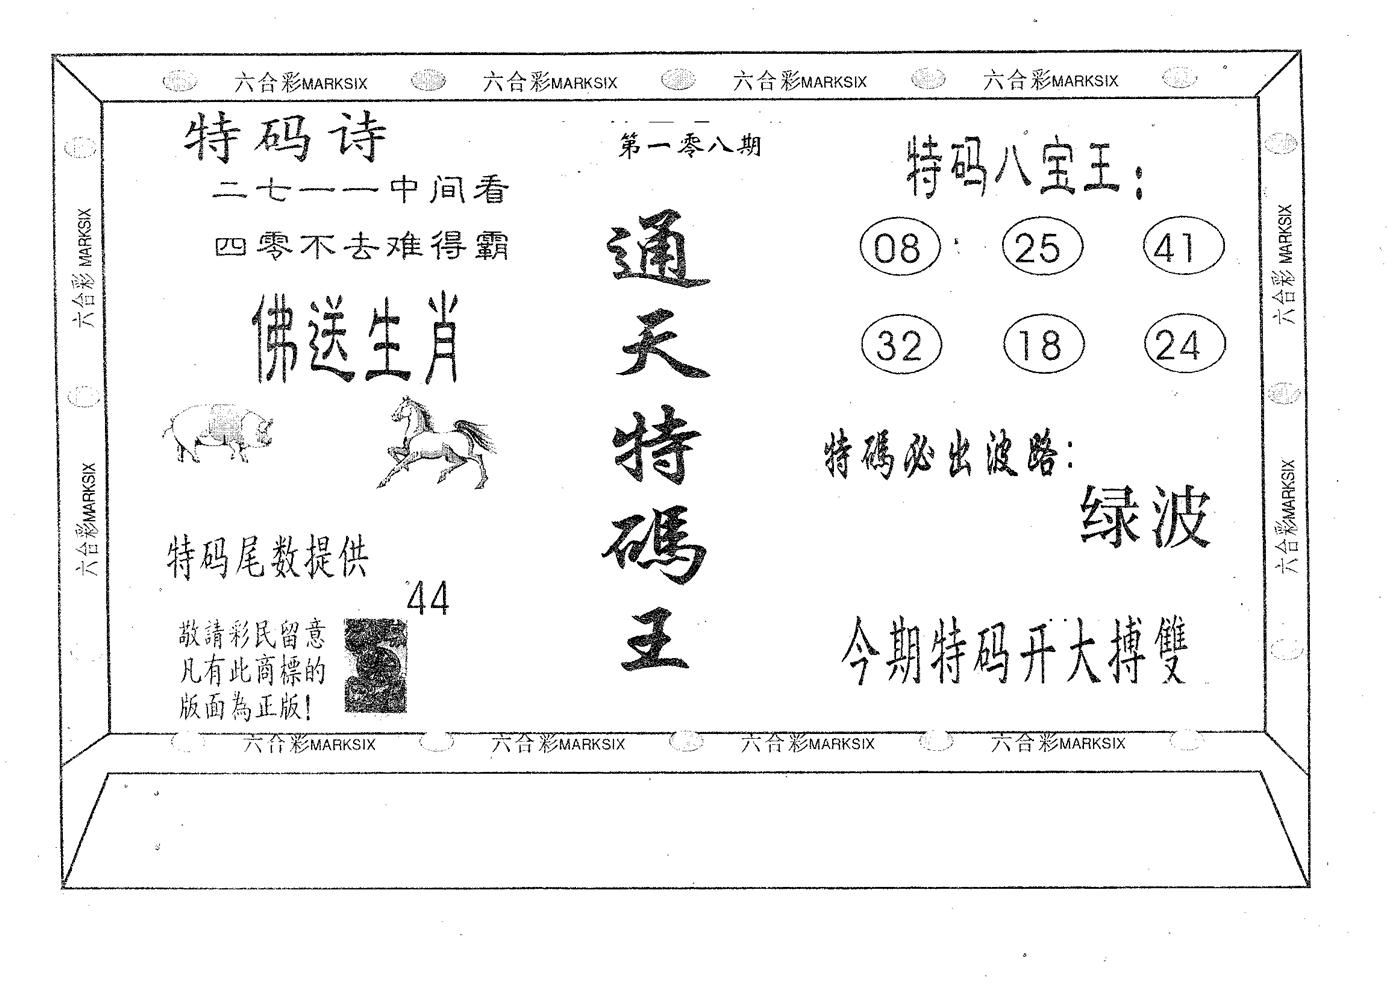 六合彩MARKSIX 六合彩MARKSIX 六合彩MARKSIX 六合彩MARKSIX
六合彩 MARKSIX
六合彩MARKSIX
特码诗
二七一一中间看
四零不去难得霸
佛送生肖
特码尾数提供
44
敬請彩民留意
凡有此商標的
版面為正版!
第一零八期
通天特碼王
特码八宝王:
08 25 41
32 18 24
特碼必出波路:
绿波
今期特码开大搏雙
六合彩 MARKSIX
六合彩MARKSIX
六合彩MARKSIX 六合彩MARKSIX 六合彩MARKSIX 六合彩MARKSIX